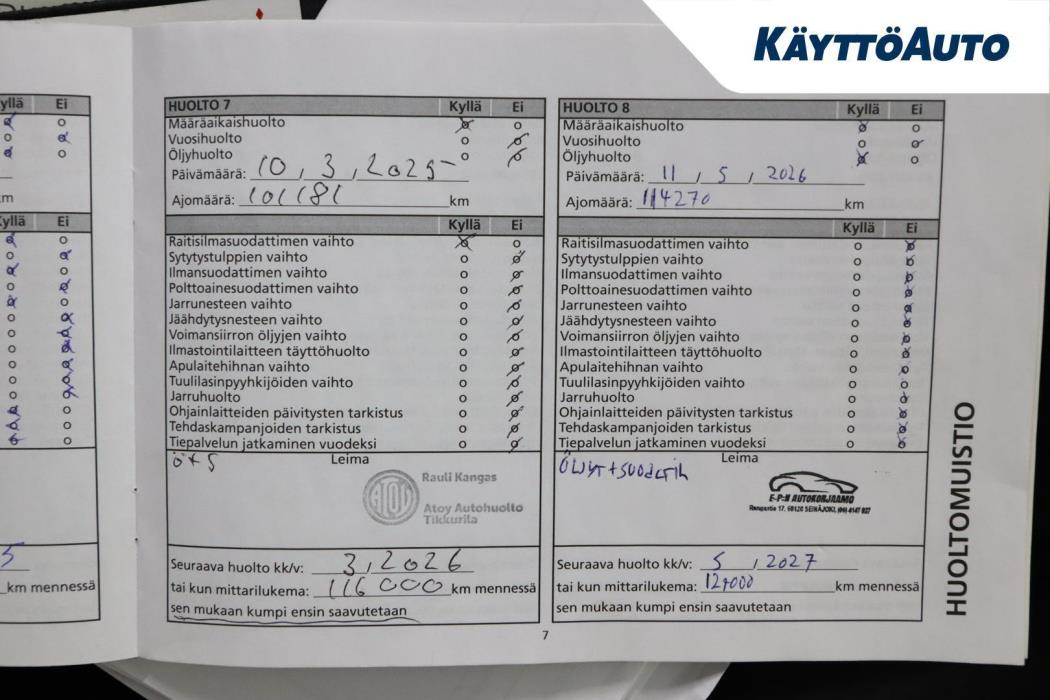 KÄYTTÖAUTO
yllä Ei
m
Kyllä Ei
5
km mennessä
HUOLTO 7 Kyllä Ei
Määräaikaishuolto
Vuosihuolto
Öljyhuolto
Päivämäärä: 10, 3, 2025
Ajomäärä: 101181 km
Kyllä Ei
Raitisilmasuodattimen vaihto
Sytytystulppien vaihto
Ilmansuodattimen vaihto
Polttoainesuodattimen vaihto
Jarrunesteen vaihto
Jäähdytysnesteen vaihto
Voimansiirron öljyjen vaihto
Ilmastointilaitteen täyttöhuolto
Apulaitehihnan vaihto
Tuulilasinpyyhkijöiden vaihto
Jarruhuolto
Ohjainlaitteiden päivitysten tarkistus
Tehdaskampanjoiden tarkistus
Tiepalvelun jatkaminen vuodeksi
Ö+S Leima
ATOY
Rauli Kangas
Atoy Autohuolto
Tikkurila
Seuraava huolto kk/v: 3, 2026
tai kun mittarilukema: 116000 km mennessä
sen mukaan kumpi ensin saavutetaan
HUOLTO 8 Kyllä Ei
Määräaikaishuolto
Vuosihuolto
Öljyhuolto
Päivämäärä: 11, 5, 2026
Ajomäärä: 114270 km
Kyllä Ei
Raitisilmasuodattimen vaihto
Sytytystulppien vaihto
Ilmansuodattimen vaihto
Polttoainesuodattimen vaihto
Jarrunesteen vaihto
Jäähdytysnesteen vaihto
Voimansiirron öljyjen vaihto
Ilmastointilaitteen täyttöhuolto
Apulaitehihnan vaihto
Tuulilasinpyyhkijöiden vaihto
Jarruhuolto
Ohjainlaitteiden päivitysten tarkistus
Tehdaskampanjoiden tarkistus
Tiepalvelun jatkaminen vuodeksi
Leima
E-P:N AUTOKORJAAMO
17, 60120 SEINÄJOKI,
Seuraava huolto kk/v: 5, 2027
tai kun mittarilukema: km mennessä
sen mukaan kumpi ensin saavutetaan
7
HUOLTOMUISTIO